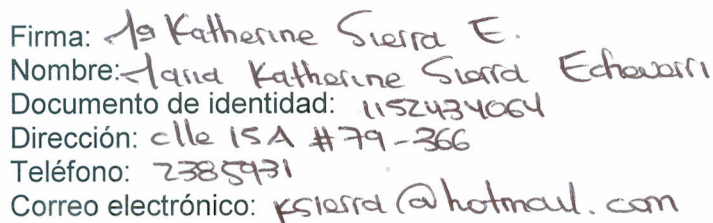 Firma: Ma Katherine Sierra E.
Nombre: Maria Katherine Sierra Echavarri
Documento de identidad: 1152434064
Dirección: clle 15A #79-366
Teléfono: 2385931
Correo electrónico: ksierra@hotmail.com